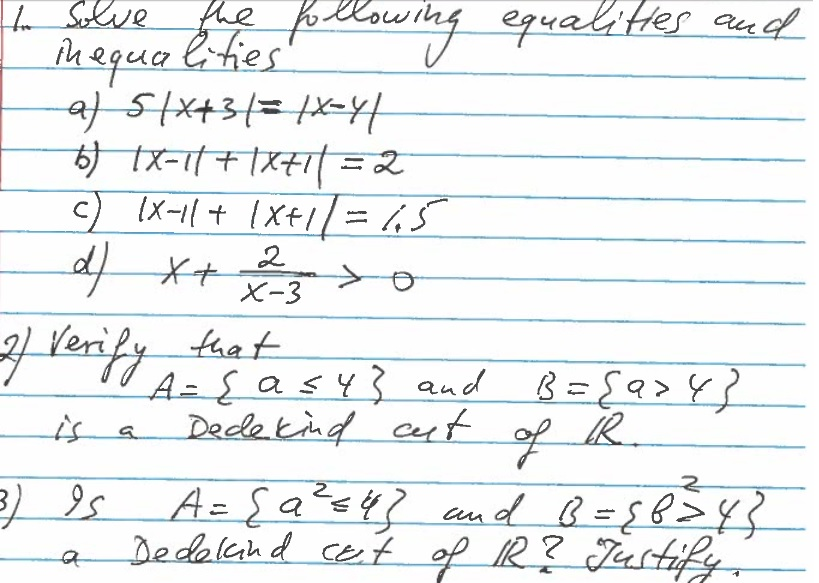 1. Solve the following equalities and
inequalities
a) 5|x+3|=|x-4|
b) |x-1|+|x+1|=2
c) |x-1|+|x+1|=1.5
d) x+ 2/(x-3) > 0
2) Verify that
A={a≤4} and B={a>4}
is a Dedekind cut of IR.
3) Is A={a²≤4} and B={b²>4}
a Dedekind cut of IR? Justify.